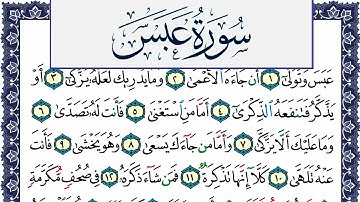 سُورَةُ عَبَسَ
عَبَسَ وَتَوَلَّىٰ ١ أَن جَاءَهُ الْأَعْمَىٰ ٢ وَمَا يُدْرِيكَ لَعَلَّهُ يَزَّكَّىٰ ٣ أَوْ
يَذَّكَّرُ فَتَنفَعَهُ الذِّكْرَىٰ ٤ أَمَّا مَنِ اسْتَغْنَىٰ ٥ فَأَنتَ لَهُ تَصَدَّىٰ ٦
وَمَا عَلَيْكَ أَلَّا يَزَّكَّىٰ ٧ وَأَمَّا مَن جَاءَكَ يَسْعَىٰ ٨ وَهُوَ يَخْشَىٰ ٩ فَأَنتَ
عَنْهُ تَلَهَّىٰ ١٠ كَلَّا إِنَّهَا تَذْكِرَةٌ ١١ فَمَن شَاءَ ذَكَرَهُ ١٢ فِي صُحُفٍ مُّكَرَّمَةٍ